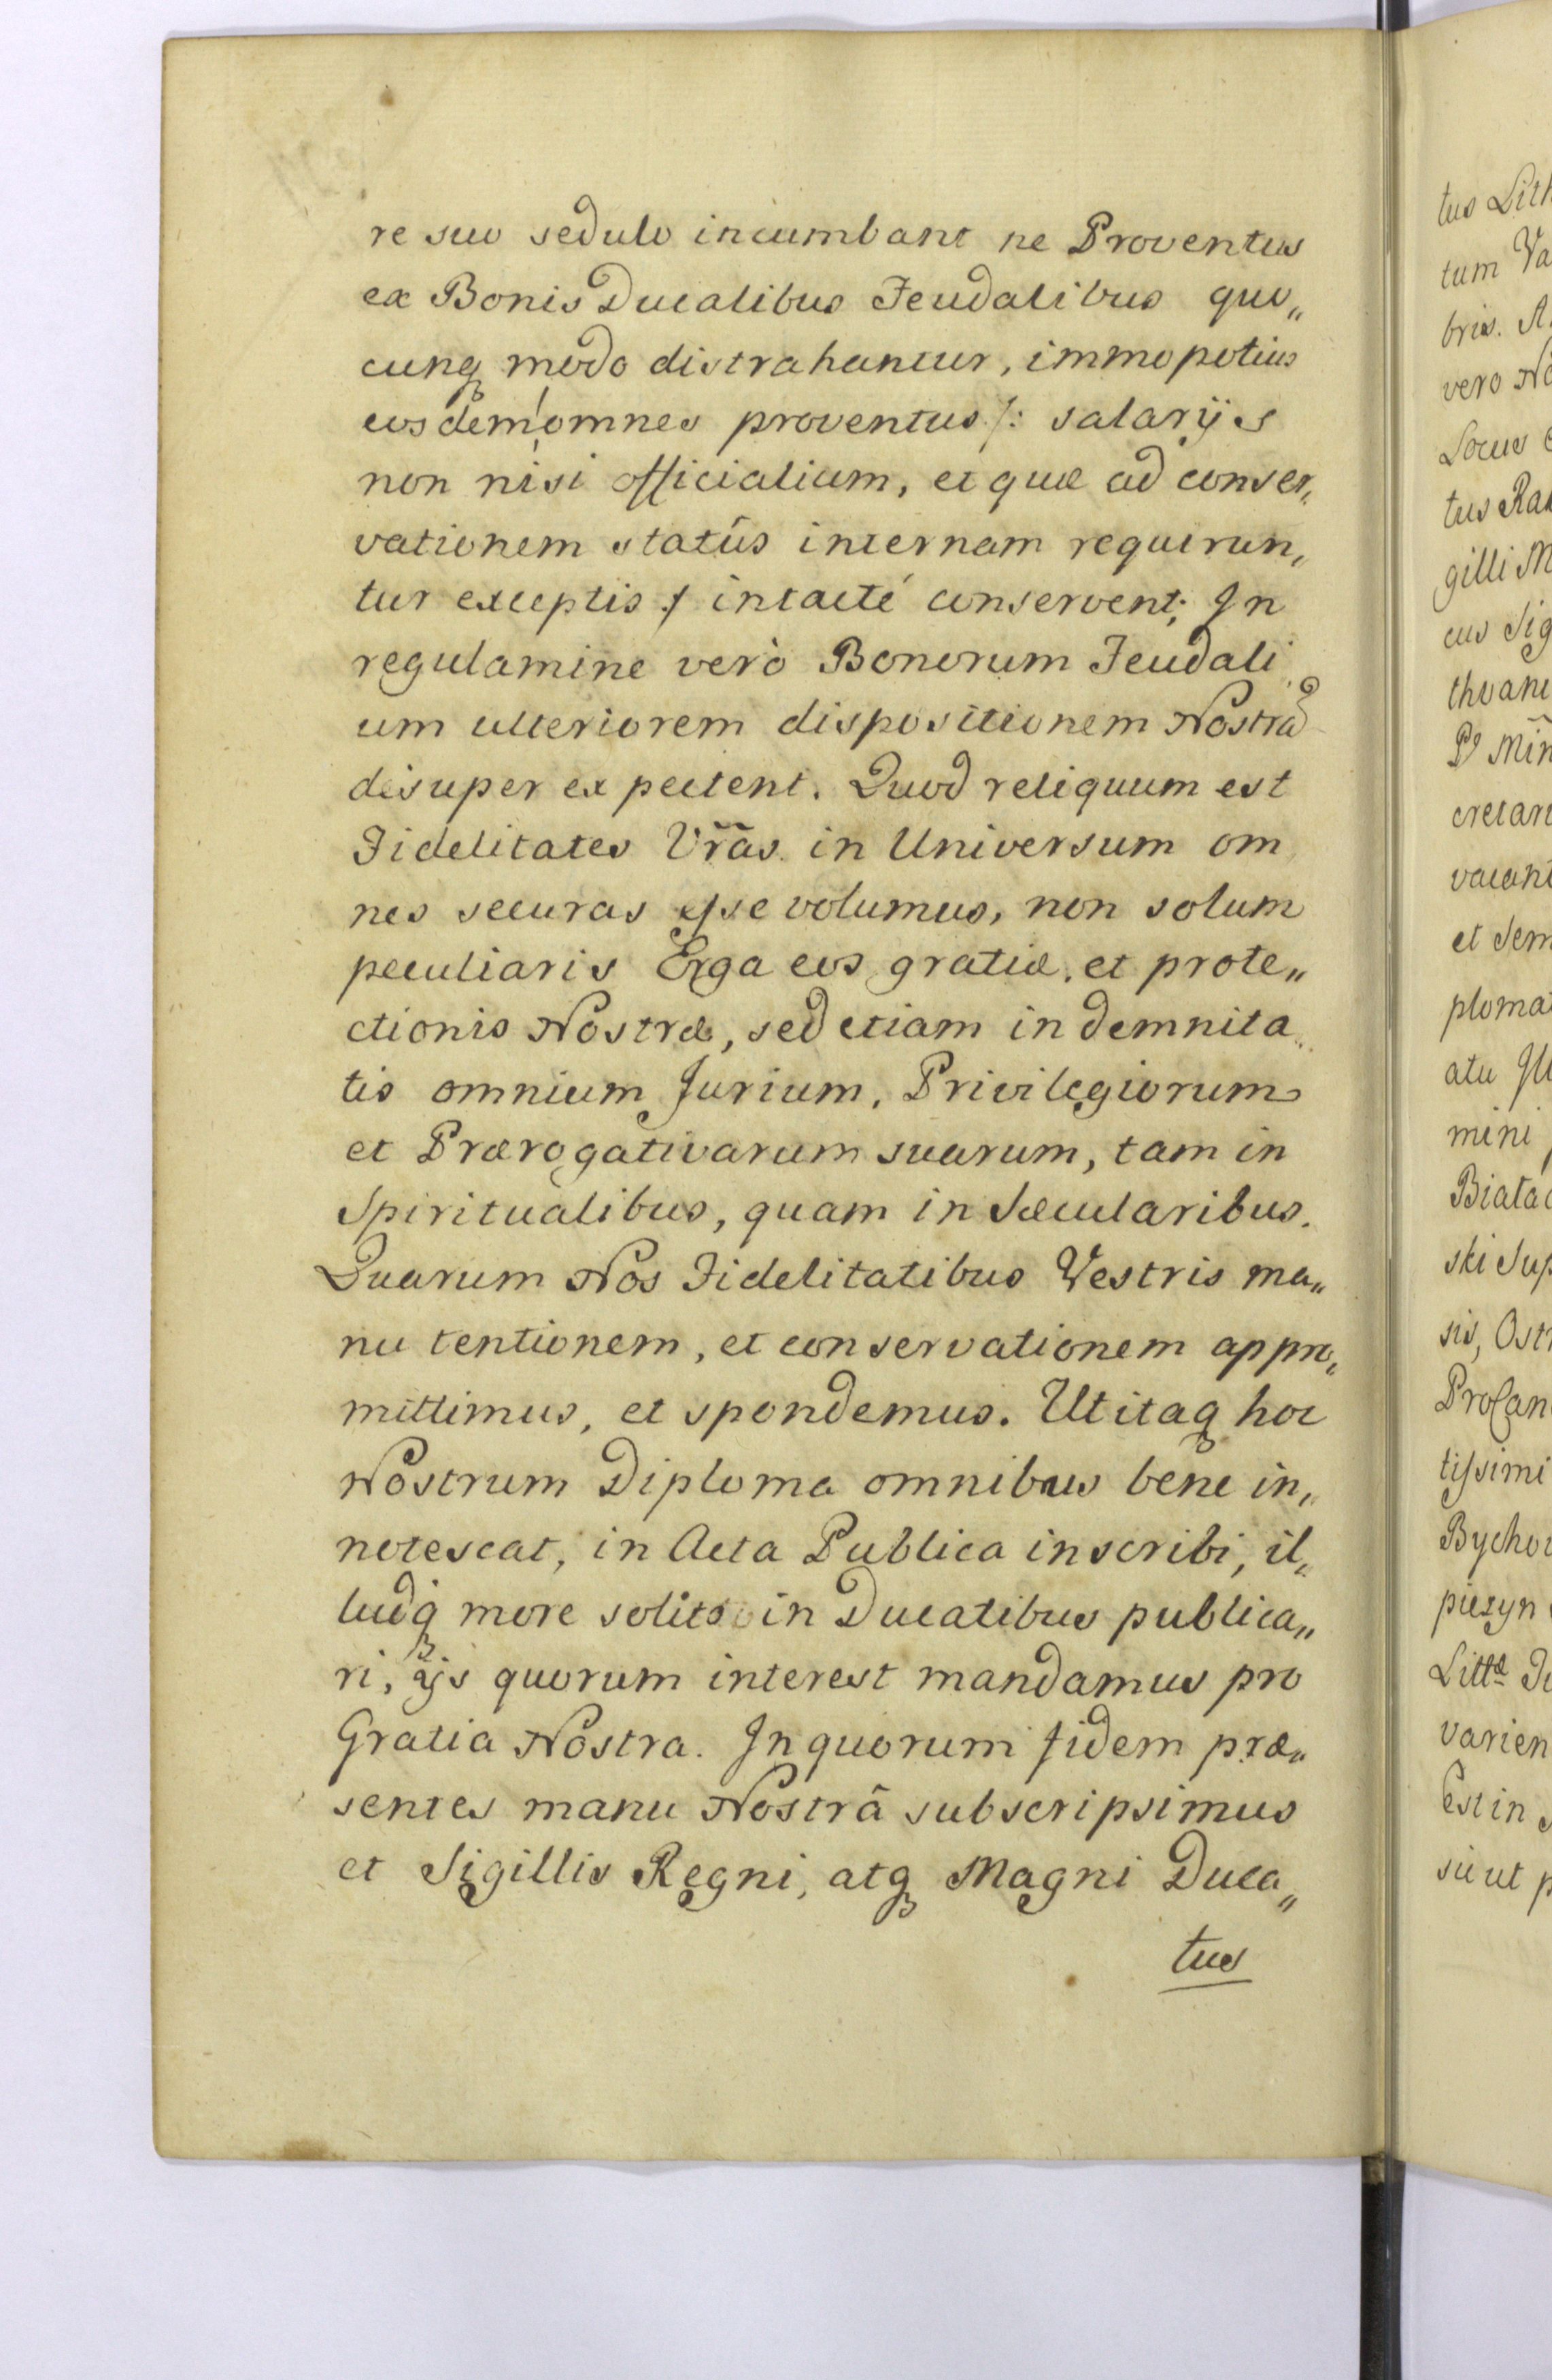 re suo sedulo incumbant ne Proventus
ex Bonis Ducalibus Feudalibus quo„
cunq modo distrahantur, immo potius
eosdem omnes proventus /: salarijs
non nisi officialium, et quæ ad conser„
vationem statûs internam requirun„
tur exceptis :/ intacté conservent; In
regulamine verò Bonorum Feudali„
um ulteriorem dispositionem Nostrã
desuper expectent. Quod reliquum est
Fidelitates Vr̃ãs in Universum om„
nes securas esse volumus, non solum
peculiaris Erga eos gratiæ, et prote„
ctionis Nostræ, sed etiam indemnita„
tis omnium Jurium, Privilegiorum
et Prærogativarum suarum, tam in
Spiritualibus, quam in Sæcularibus.
Quarum Nos Fidelitatibus Vestris ma„
nu tentionem, et conservationem appro„
mittimus, et spondemus. Ut itaq hoc
Nostrum Diploma omnibus bene in„
notescat, in Acta Publica inscribi, il„
ludq more solito in Ducatibus publica„
ri, ijs quorum interest mandamus pro
Gratia Nostra. In quorum fidem præ„
sentes manu Nostrâ subscripsimus
et Sigillis Regni, atq Magni Duca„
tus
tus Lith
tum Va
bris. A
vero No
Locus
tus Ra
gilli M
cus Sig
thvani
Min
cretari
vacant
et Sem
ploma
atu Ill
mini
Biała
ski Sup
sis, Ost
ProCan
tissimi
Bycho
piezyn
Littæ
varien
Est in
sicut p